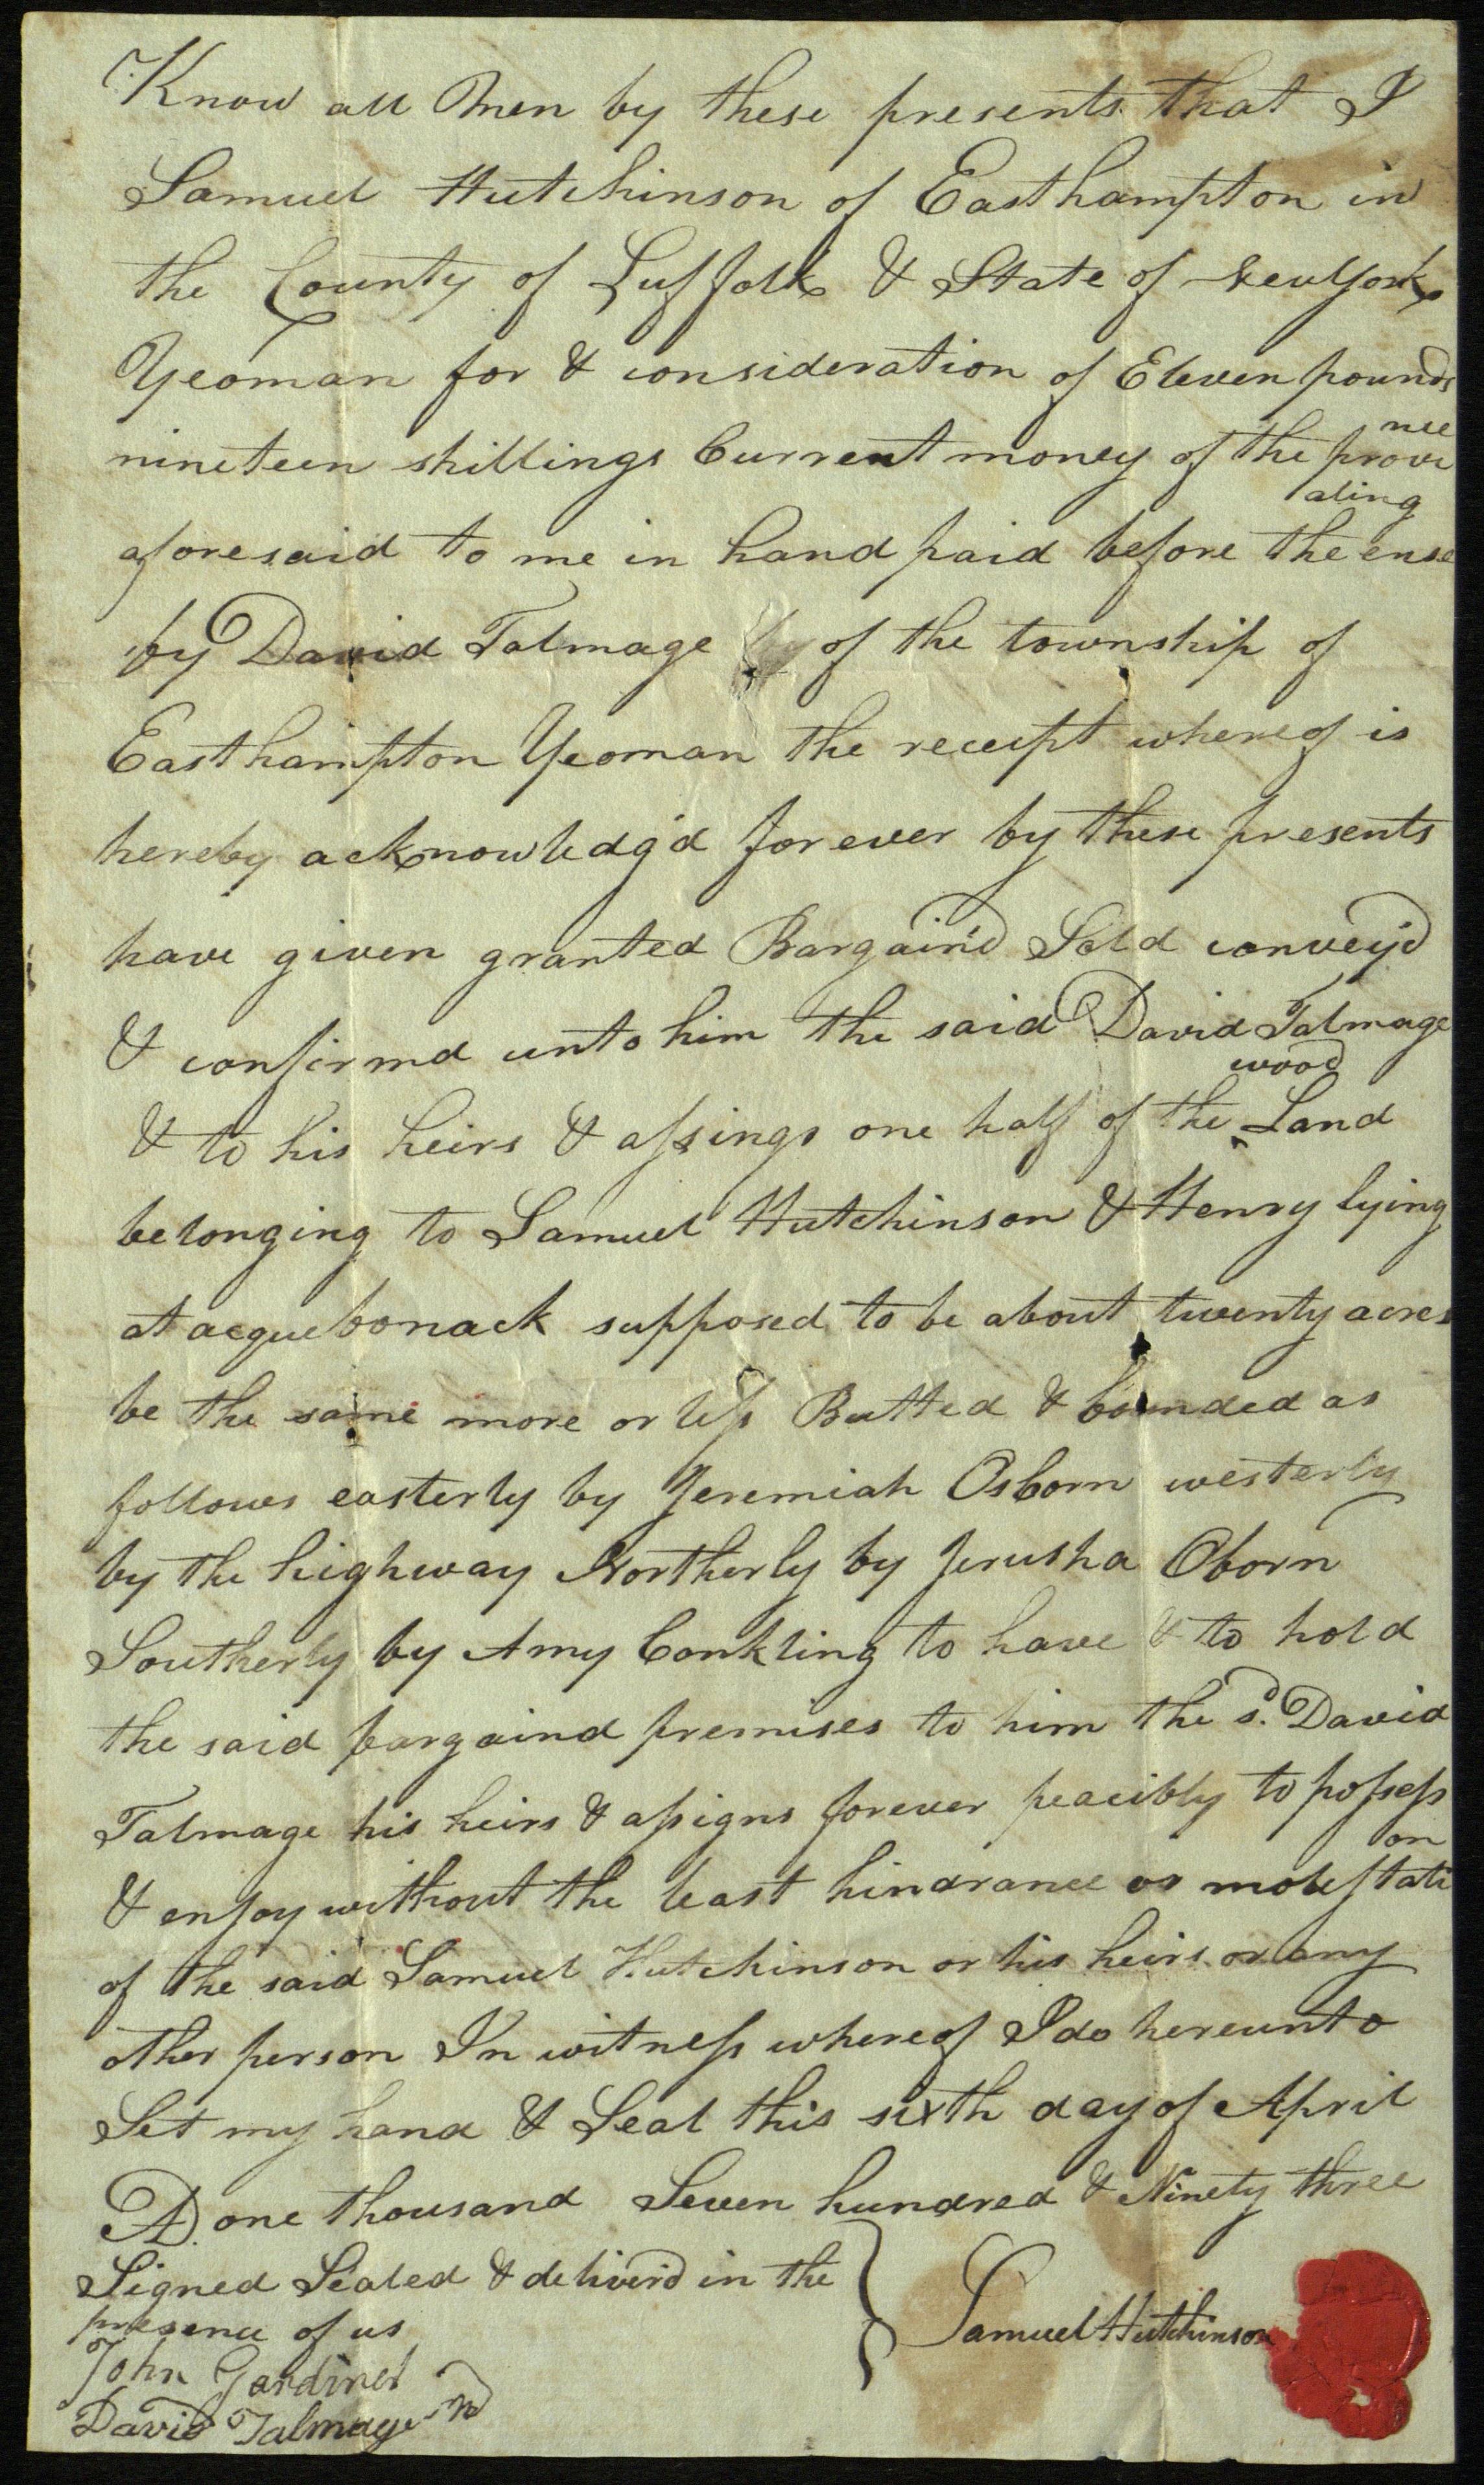 Know all Men by these presents that I
Samuel Hutchinson of Easthampton in
the County of Suffolk & State of NewYork
Yeoman for & consideration of Eleven pounds
nineteen shillings Current money of the provi
nce
aforesaid to me in hand paid before the ense
aling
by David Talmage of the township of
Easthampton Yeoman the receipt whereof is
hereby acknowledg'd forever by these presents
have given granted Bargain'd Sold convey'd
& confirmd unto him the said David Talmage
& to his heirs & assings one half of the ‸ wood Land
belonging to Samuel Hutchinson & Henry lying
at acquebonack supposed to be about twenty acres
be the same more or less Butted & bounded as
follows easterly by Jeremiah Osborn westerly
by the highway Northerly by Jerusha Oborn
Southerly by Amy Conkling to have & to hold
the said bargaind premises to him the sd. David
Talmage his heirs & assigns forever peacibly to possess
& enjoy without the least hindrance or molestati
on
of the said Samuel Hutchinson or his heirs or any
other person In witness whereof I do hereunto
Set my hand & Seal this sixth day of April
AD. one thousand Seven hundred & Ninety three
Signed Sealed & deliver'd in the
presence of us
John Gardiner
David Talmage
Samuel Hutchinson